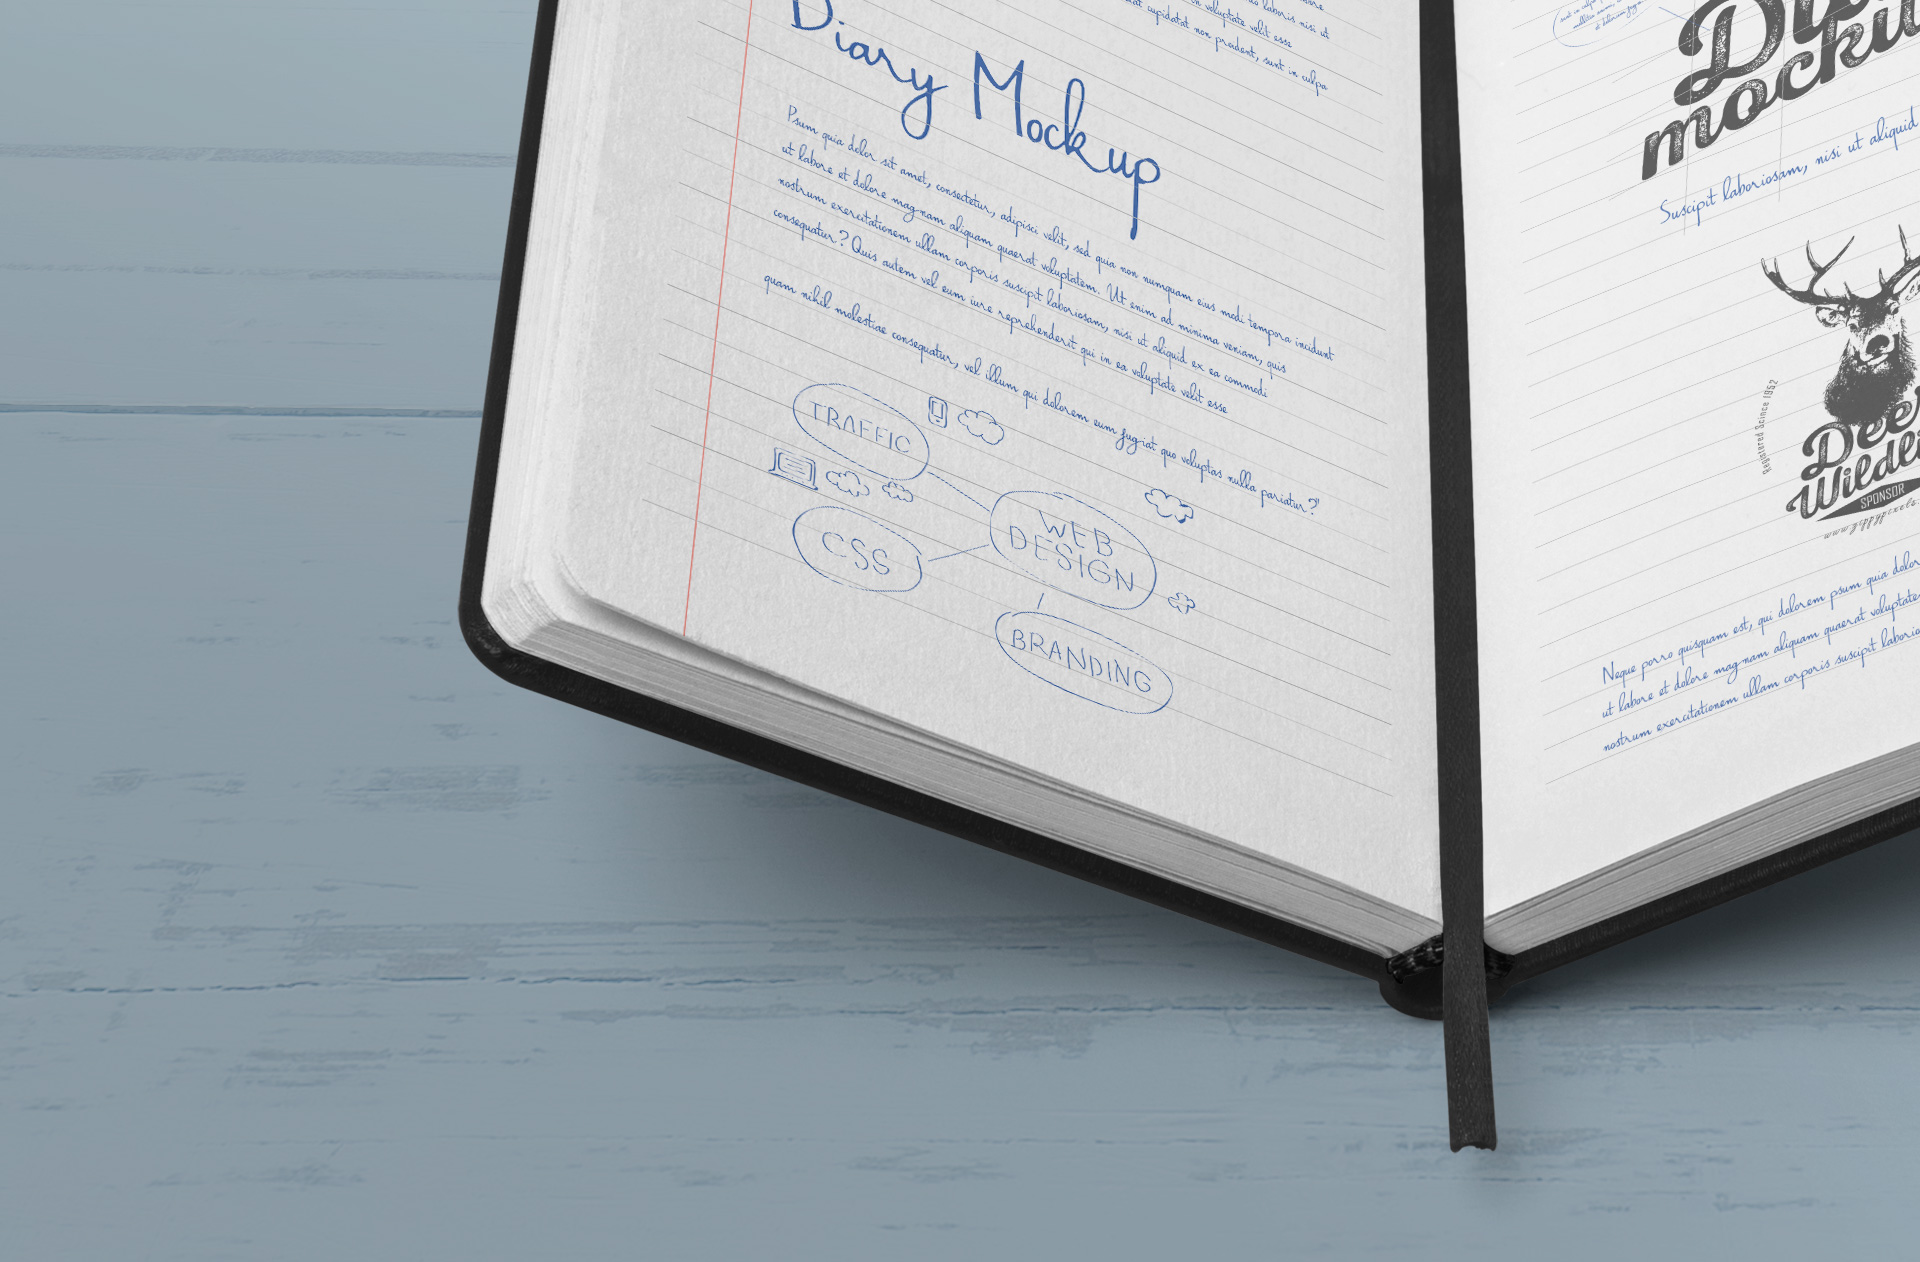 voluptate velit esse
cupidatat non proident, sunt in culpa
Diary Mockup
Psum quia dolor sit amet, consectetur, adipisci velit, sed quia non numquam eius modi tempora incidunt
ut labore et dolore magnam aliquam quaerat voluptatem. Ut enim ad minima veniam, quis
nostrum exercitationem ullam corporis suscipit laboriosam, nisi ut aliquid ex ea commodi
consequatur? Quis autem vel eum iure reprehenderit qui in ea voluptate velit esse
quam nihil molestiae consequatur, vel illum qui dolorem eum fugiat quo voluptas nulla pariatur?"
TRAFFIC
CSS
WEB
DESIGN
BRANDING
mocku
Suscipit laboriosam, nisi ut aliquid
Registered Scince 1952
Deer
Wildli
SPONSOR
www.zippypixels
Neque porro quisquam est, qui dolorem psum quia dolor
ut labore et dolore magnam aliquam quaerat voluptatem
nostrum exercitationem ullam corporis suscipit laborio